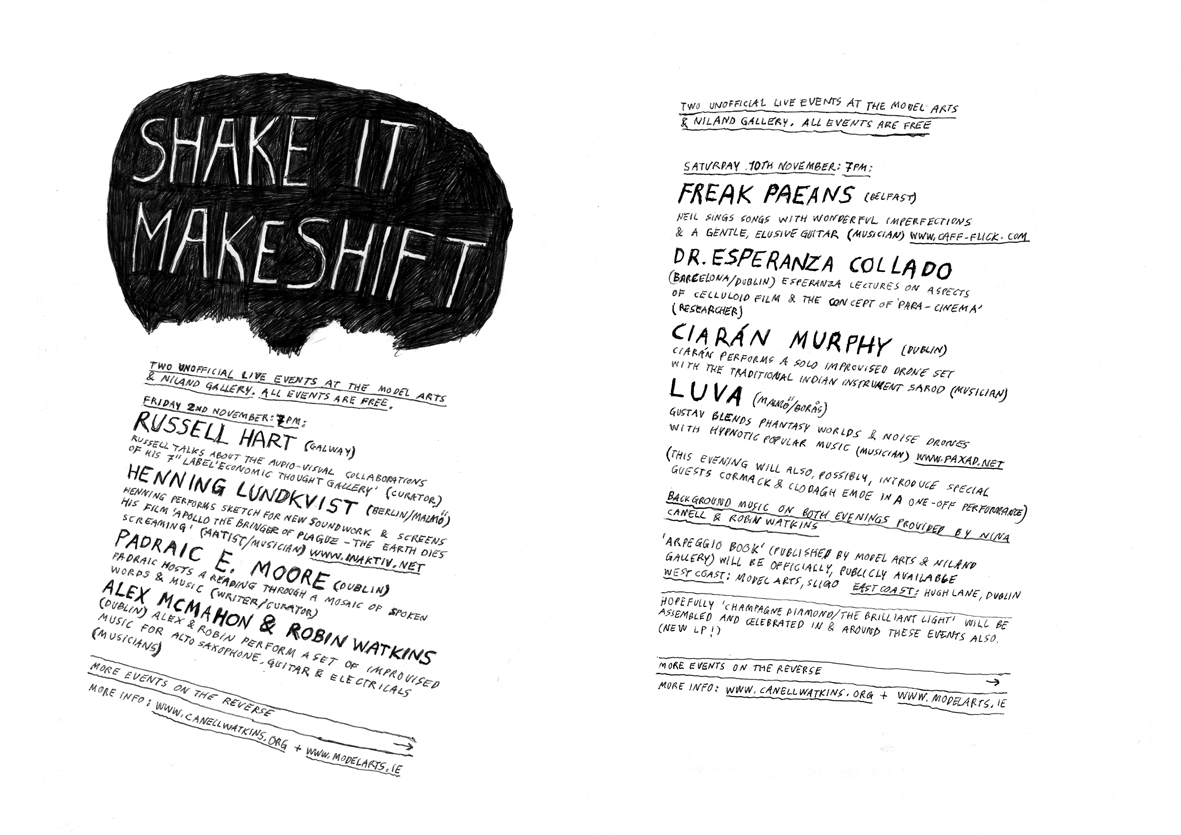 SHAKE IT
MAKESHIFT
TWO UNOFFICIAL LIVE EVENTS AT THE MODEL ARTS
& NILAND GALLERY. ALL EVENTS ARE FREE.
FRIDAY 2ND NOVEMBER: 7PM:
RUSSELL HART (GALWAY)
RUSSELL TALKS ABOUT THE AUDIO-VISUAL COLLABORATIONS
OF HIS 7" LABEL 'ECONOMIC THOUGHT GALLERY' (CURATOR)
HENNING LUNDKVIST (BERLIN/MALMÖ)
HENNING PERFORMS SKETCH FOR NEW SOUNDWORK & SCREENS
HIS FILM 'APOLLO THE BRINGER OF PLAGUE - THE EARTH DIES
SCREAMING' (ARTIST/MUSICIAN) WWW.INAKTIV.NET
PADRAIC E. MOORE (DUBLIN)
PADRAIC HOSTS A READING THROUGH A MOSAIC OF SPOKEN
WORDS & MUSIC (WRITER/CURATOR)
ALEX MCMAHON & ROBIN WATKINS
(DUBLIN) ALEX & ROBIN PERFORM A SET OF IMPROVISED
MUSIC FOR ALTO SAXOPHONE, GUITAR & ELECTRICALS
(MUSICIANS)
MORE EVENTS ON THE REVERSE
MORE INFO: WWW.CANELLWATKINS.ORG + WWW.MODELARTS.IE
TWO UNOFFICIAL LIVE EVENTS AT THE MODEL ARTS
& NILAND GALLERY. ALL EVENTS ARE FREE
SATURDAY 10TH NOVEMBER: 7PM:
FREAK PAEANS (BELFAST)
NEIL SINGS SONGS WITH WONDERFUL IMPERFECTIONS
& A GENTLE, ELUSIVE GUITAR (MUSICIAN) WWW.CAFF-FLICK.COM
DR. ESPERANZA COLLADO
(BARCELONA/DUBLIN) ESPERANZA LECTURES ON ASPECTS
OF CELLULOID FILM & THE CONCEPT OF 'PARA-CINEMA'
(RESEARCHER)
CIARÁN MURPHY (DUBLIN)
CIARÁN PERFORMS A SOLO IMPROVISED DRONE SET
WITH THE TRADITIONAL INDIAN INSTRUMENT SAROD (MUSICIAN)
LUVA (MALMÖ/BORÅS)
GUSTAV BLENDS PHANTASY WORLDS & NOISE DRONES
WITH HYPNOTIC POPULAR MUSIC (MUSICIAN) WWW.PAXAD.NET
(THIS EVENING WILL ALSO, POSSIBLY, INTRODUCE SPECIAL
GUESTS CORMACK & CLODAGH EMOE IN A ONE-OFF PERFORMANCE)
BACKGROUND MUSIC ON BOTH EVENINGS PROVIDED BY NINA
CANELL & ROBIN WATKINS
'ARPEGGIO BOOK' (PUBLISHED BY MODEL ARTS & NILAND
GALLERY) WILL BE OFFICIALLY, PUBLICLY AVAILABLE
WEST COAST: MODEL ARTS, SLIGO EAST COAST: HUGH LANE, DUBLIN
HOPEFULLY 'CHAMPAGNE DIAMOND/THE BRILLIANT LIGHT' WILL BE
ASSEMBLED AND CELEBRATED IN & AROUND THESE EVENTS ALSO.
(NEW LP!)
MORE EVENTS ON THE REVERSE
MORE INFO: WWW.CANELLWATKINS.ORG + WWW.MODELARTS.IE